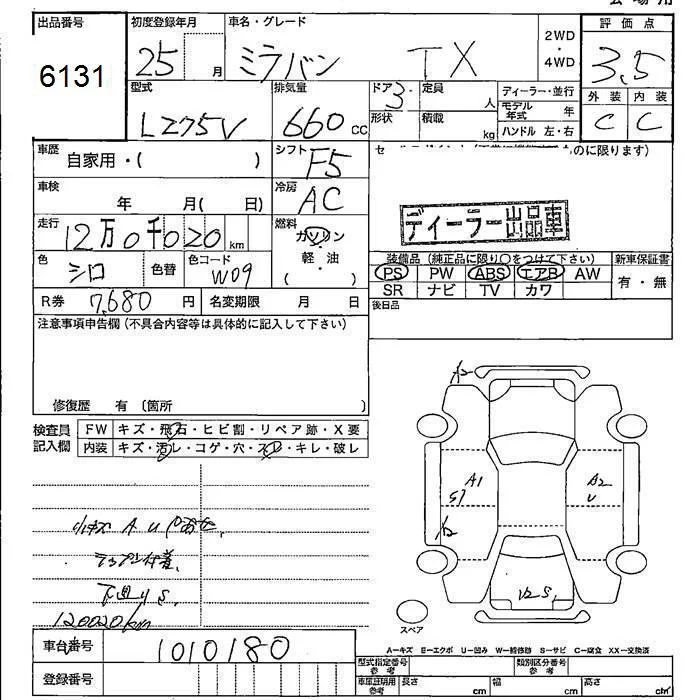 出品番号 初度登録年月 車名・グレード 2WD・4WD 評価点
6131 25 月 ミラバン TX 3.5
型式 排気量 ドア 3 定員 人 ディーラー・並行 外装 内装
L275V 660 cc 形状 積載 kg モデル年式 年 C C
ハンドル 左・右
車歴 自家用・( ) シフト F5 のに限ります)
車検 年 月( 日) 冷房 AC
ディーラー出品車
走行 12万0千020 km 燃料 ガソリン
軽・油
( ・ )
色 シロ 色替 色コード W09
装備品(純正品に限り○をつけて下さい) 新車保証書
PS PW ABS エアB AW 有・無
SR ナビ TV カワ
R券 7,680 円 名変期限 月 日 後日品
注意事項申告欄(不具合内容等は具体的に記入して下さい)
修復歴 有 〔箇所 〕
検査員記入欄 FW キズ・飛石・ヒビ割・リペア跡・X要
内装 キズ・汚レ・コゲ・穴・スレ・キレ・破レ
A1
A2
U
S7
小キズ A U
下廻り S.
120020km
S,
スペア
車台番号 1010180
A−キズ E−エクボ U−凹み W−補修跡 S−サビ C−腐食 XX−交換済
登録番号 型式指定番号 参考 類別区分番号 参考
車庫証明用 参考 長さ cm 幅 cm 高さ cm